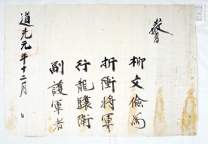 敎旨
柳文儉爲
折衝將軍
行龍驤衛
副護軍者
道光元年十二月 日